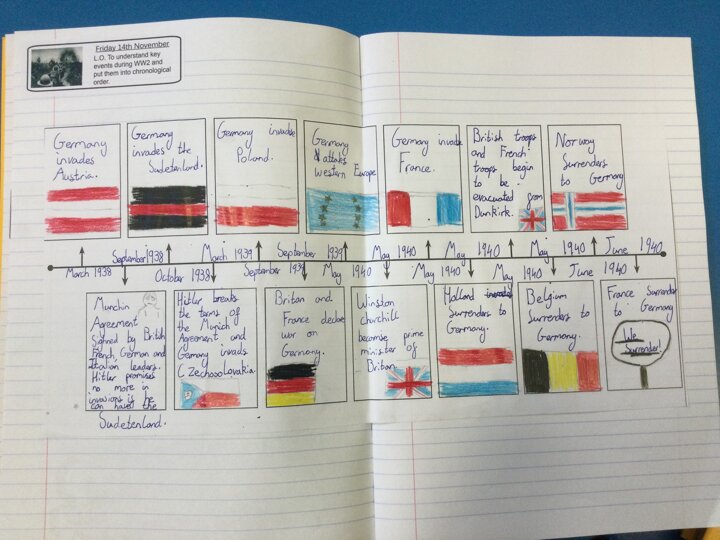 Friday 14th November
L.O. To understand key
events during WW2 and
put them into chronological
order.
Germany
invades
Austria.
Germany
invades the
Sudetenland.
Germany invade
Poland.
Germany
attakes
western Europe
Germany invade
France.
British troops
and French
troops begin
to be
evacuated from
Dunkirk.
Norway
Surrenders
to Germany
September 1938
March 1939
September 1939
May 1940
May 1940
May 1940
June 1940
March 1938
October 1938
September 1939
May 1940
May 1940
May 1940
June 1940
Munchin
Agreement
Signed by British
French, German and
Italian leaders.
Hitler promises
no more in
invasions if he
can have the
Sudetenland.
Hitler breaks
the terms of
the Munich
Agreement and
Germany invads
Czechoslovakia
Britan and
France declae
war on
Germany.
Winston
churchill
become prime
minister of
Britan
Holland invaded
Surrenders to
Germany.
Belgium
Surrenders to
Germany.
France Surrender
to Germany
We
Surrender!